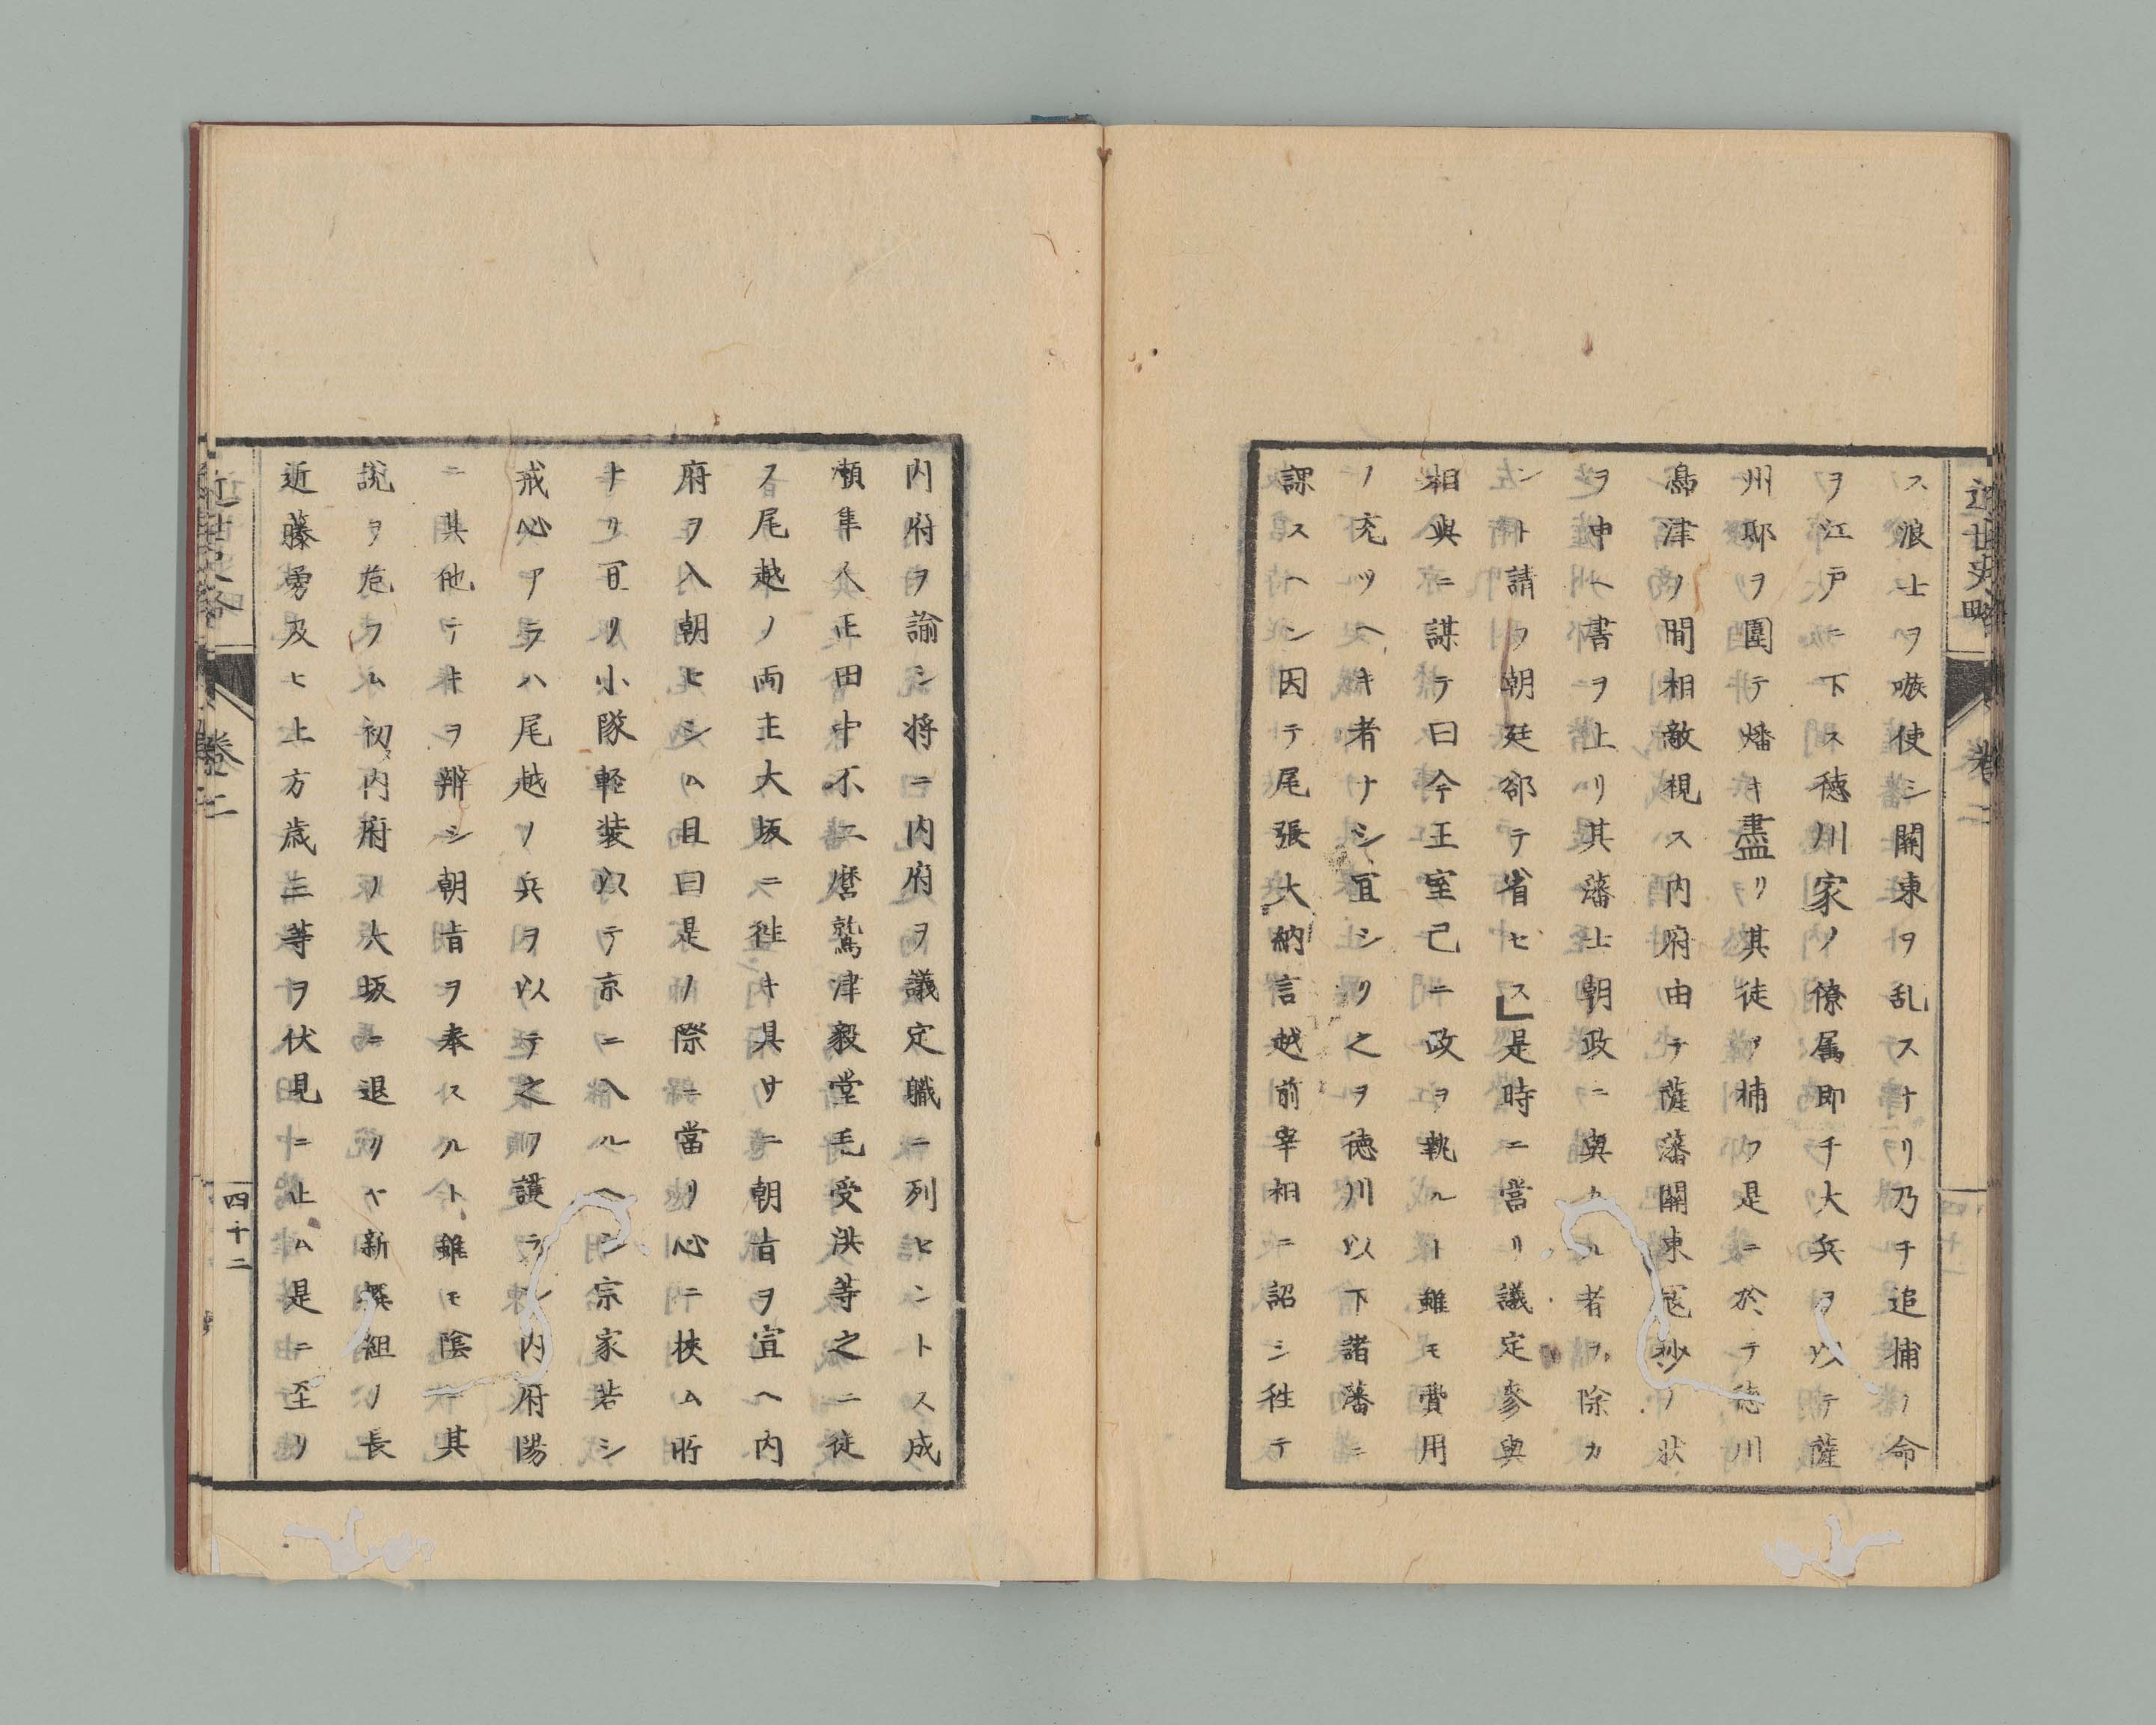 近世史略
卷二
ス浪士ヲ嗾使シ關東ヲ乱スナリ乃チ追捕ノ命
ヲ江戸ニ下ス德川家ノ僚属即チ大兵ヲ以テ薩
州邸ヲ圍テ燔キ盡リ其徒ヲ捕フ是ニ於テ德川
島津ノ間相敵視ス内府由テ薩藩關東寇抄ノ狀
ヲ申ヘ書ヲ上リ其藩士朝政ニ與カル者ヲ除カ
ント請フ朝廷郤テ省セス是時ニ當リ議定參與
相與ニ謀テ曰今王室已ニ政ヲ執ルト雖モ費用
ノ充ツヘキ者ナシ宜シリ之ヲ德川以下諸藩ニ
課スヘシ因テ尾張大納言越前宰相ニ詔シ往テ
内府ヲ諭シ將ニ内府ヲ議定職ニ列セントス成
瀬隼人正田中不二麿鷲津毅堂毛受洪等之ニ從
ス尾越ノ両主大坂ニ往キ具サニ朝旨ヲ宣ヘ内
府ヲ入朝セシム且曰是ノ際ニ當リ心ニ挾ム所
ナリ宜リ小隊軽装以テ京ニ入ルヘシ宗家若シ
戒心アラハ尾越ノ兵ヲ以テ之ヲ護ラン内府陽
ニ其他テキヲ辨シ朝旨ヲ奉スルト雖モ陰ニ其
説ヲ危フム初内府ノ大坂ニ退リヤ新撰組ノ長
近藤勇及ヒ土方歳三等ヲ伏見ニ止ム是ニ至リ
近世史略
卷二
四十二